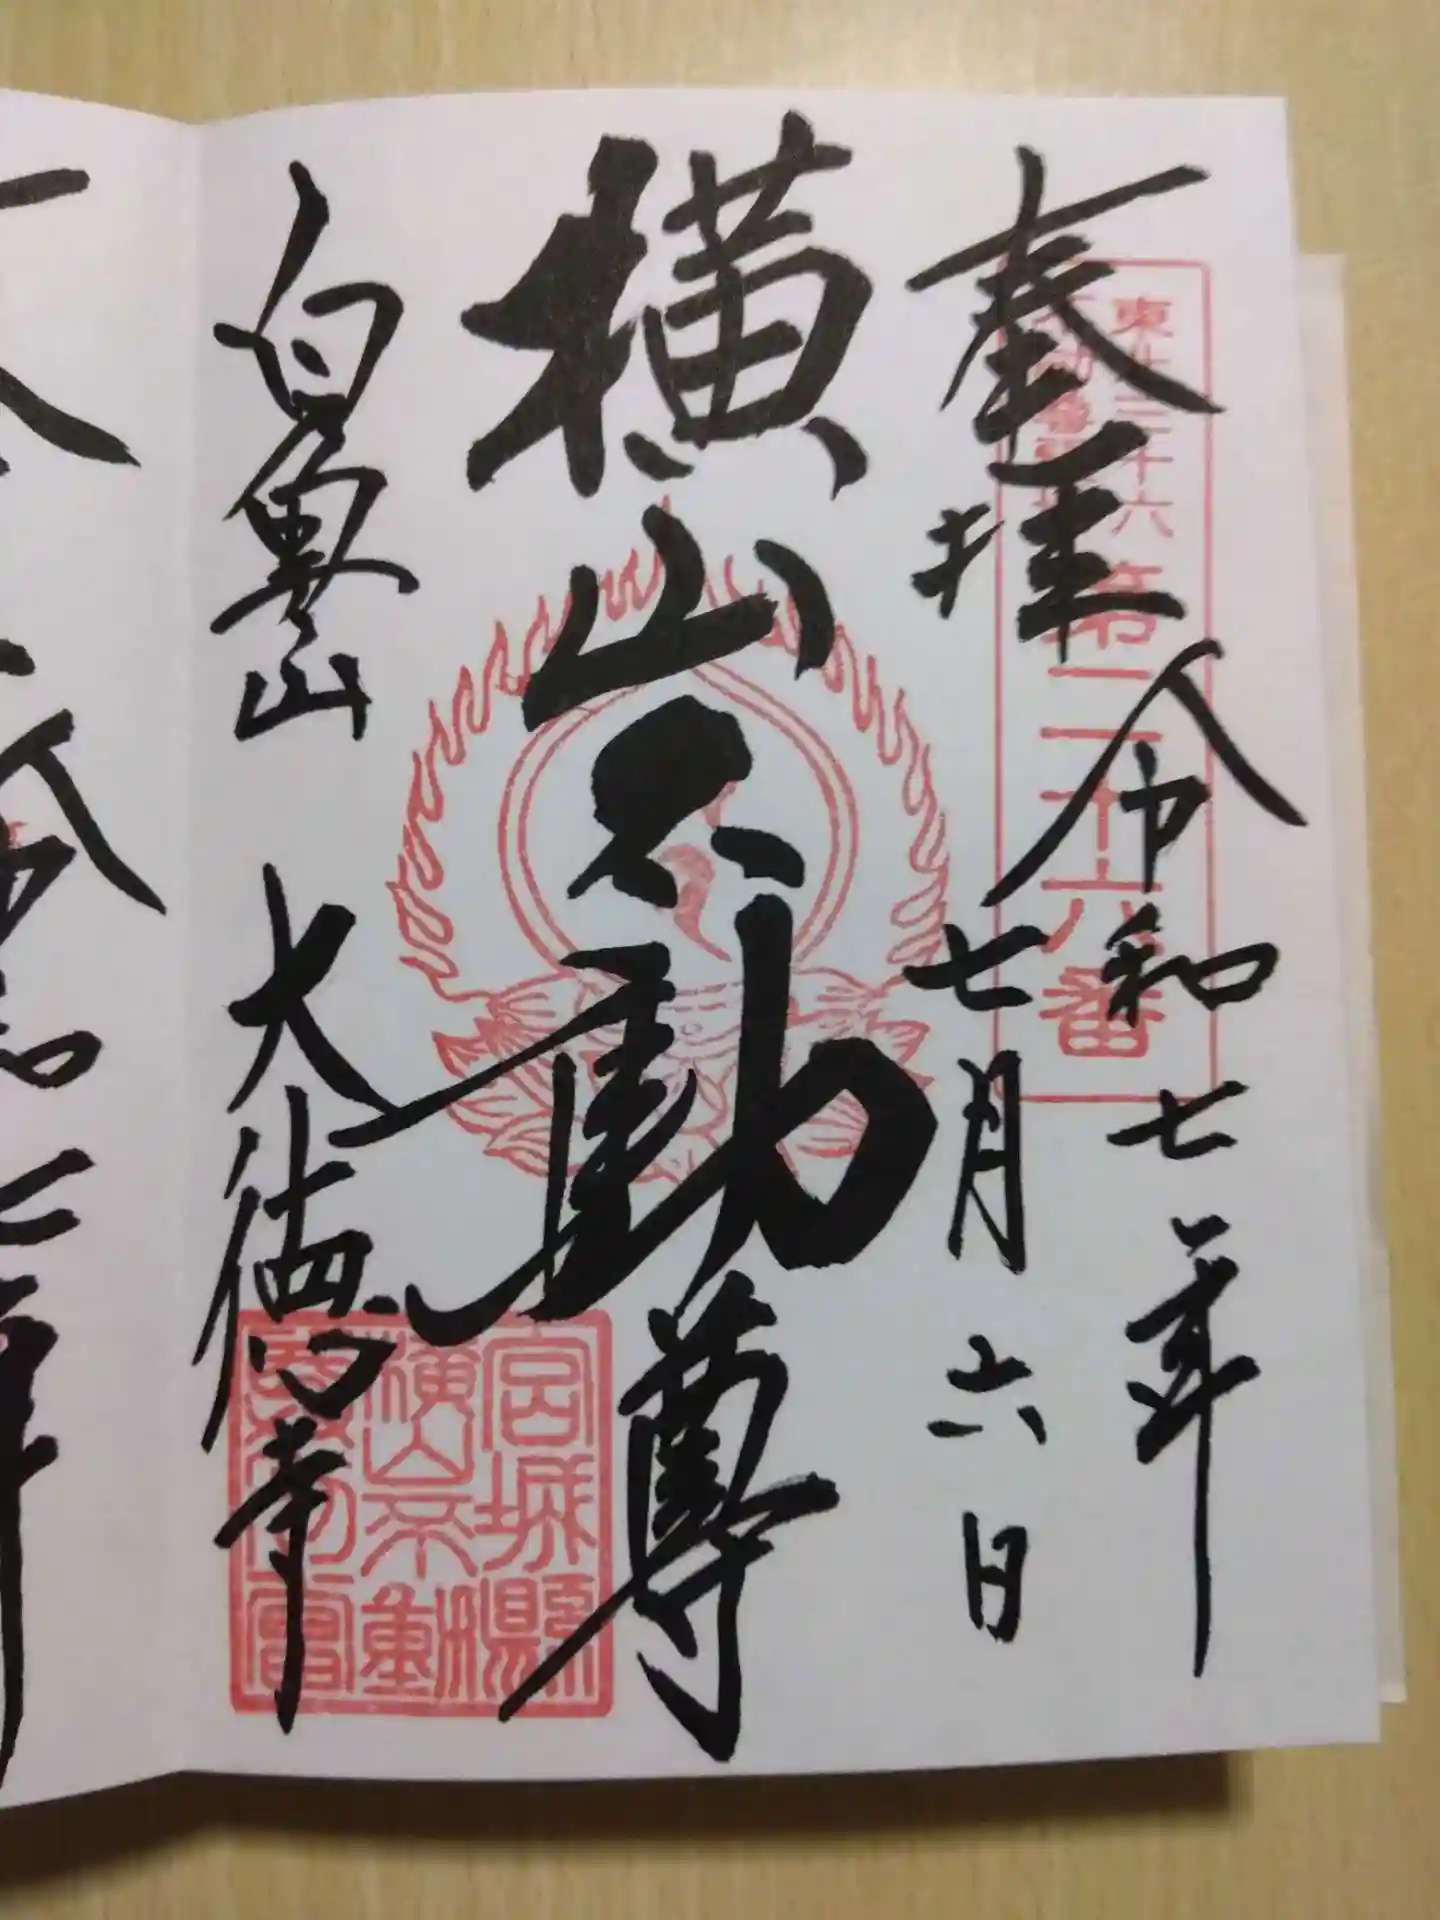 奉拝
令和七年
七月六日
東北三十六
不動尊霊場
第二十六番
横山不動尊
白魚山
大徳寺
宮城縣
横山不動